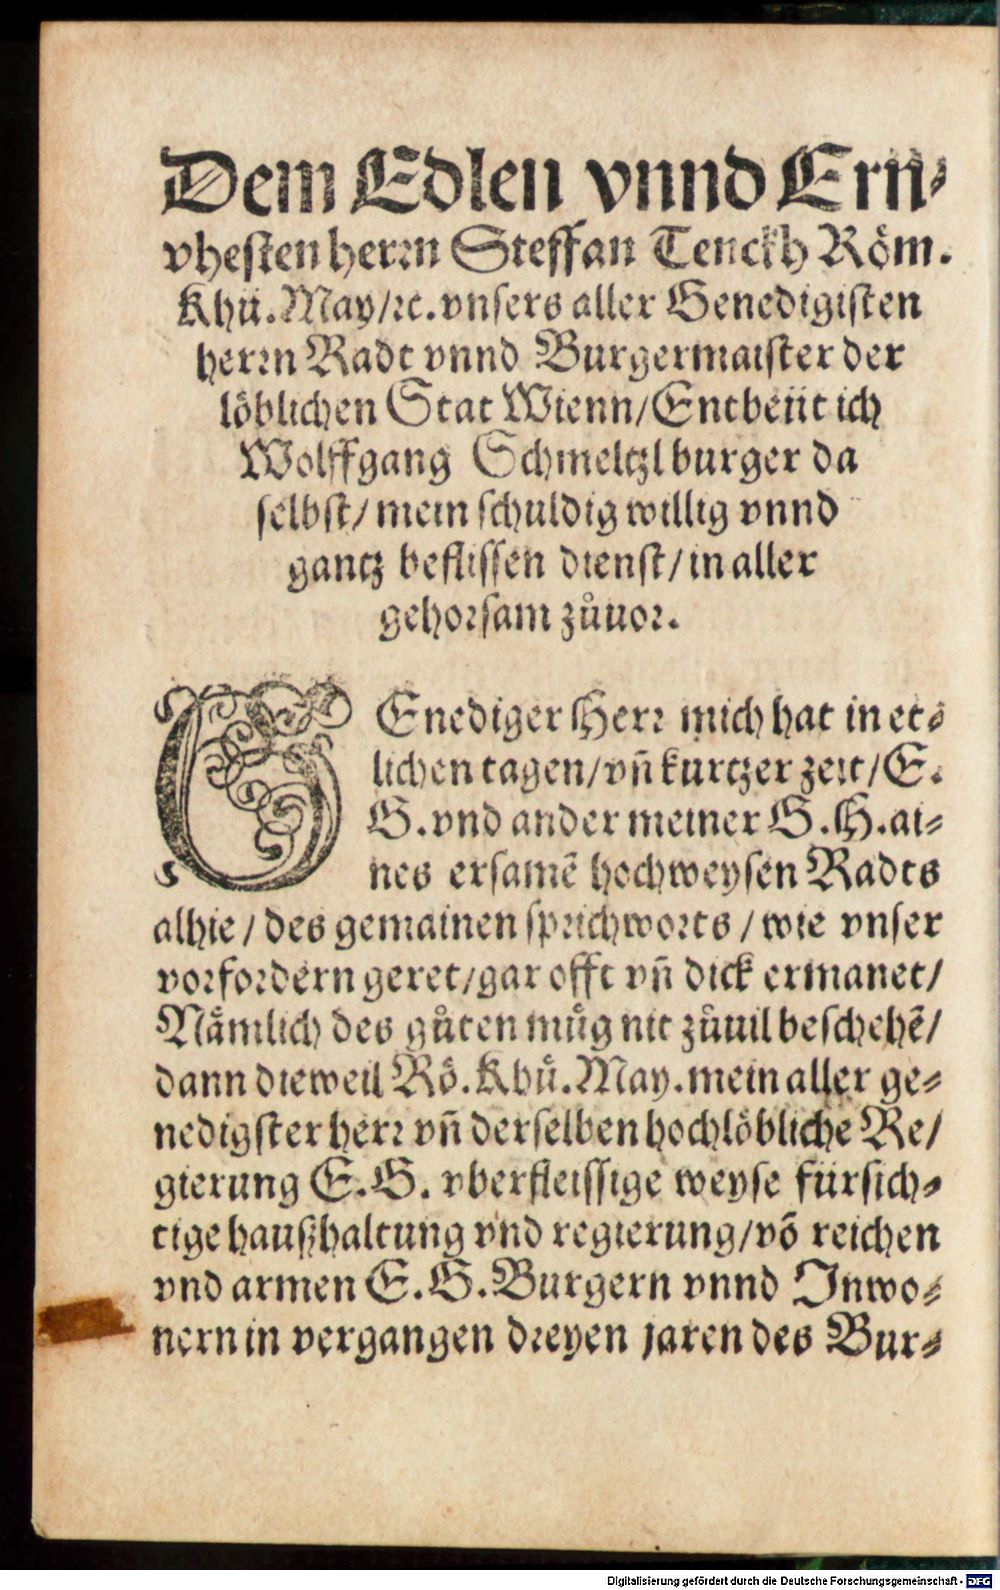 Dem Edlen vnnd Ern⸗
vhesten herrn Steffan Tenckh Röm.
Khü. May/ꝛc. vnsers aller Genedigisten
herrn Radt vnnd Burgermaister der
löblichen Stat Wienn/Entbeüt ich
Wolffgang Schmeltzl burger da
selbst/ mein schuldig willig vnnd
gantz beflissen dienst/ in aller
gehorsam zůuor.
GEnediger Herr mich hat in et⸗
lichen tagen/vñ kurtzer zeit/E.
G. vnd ander meiner G. H. ai⸗
nes ersamẽ hochweysen Radts
alhie / des gemainen sprichworts / wie vnser
vorfordern geret/gar offt vñ dick ermanet/
Nämlich des gůten müg nit zůuil beschehẽ/
dann dieweil Rö. Khü. May. mein aller ge⸗
nedigster herr vñ derselben hochlöbliche Re/
gierung E. G. vberfleissige weyse fürsich⸗
tige haußhaltung vnd regierung/võ reichen
vnd armen E. G. Burgern vnnd Inwo⸗
nern in vergangen dreyen jaren des Bur⸗
Digitalisierung gefördert durch die Deutsche Forschungsgemeinschaft - DFG